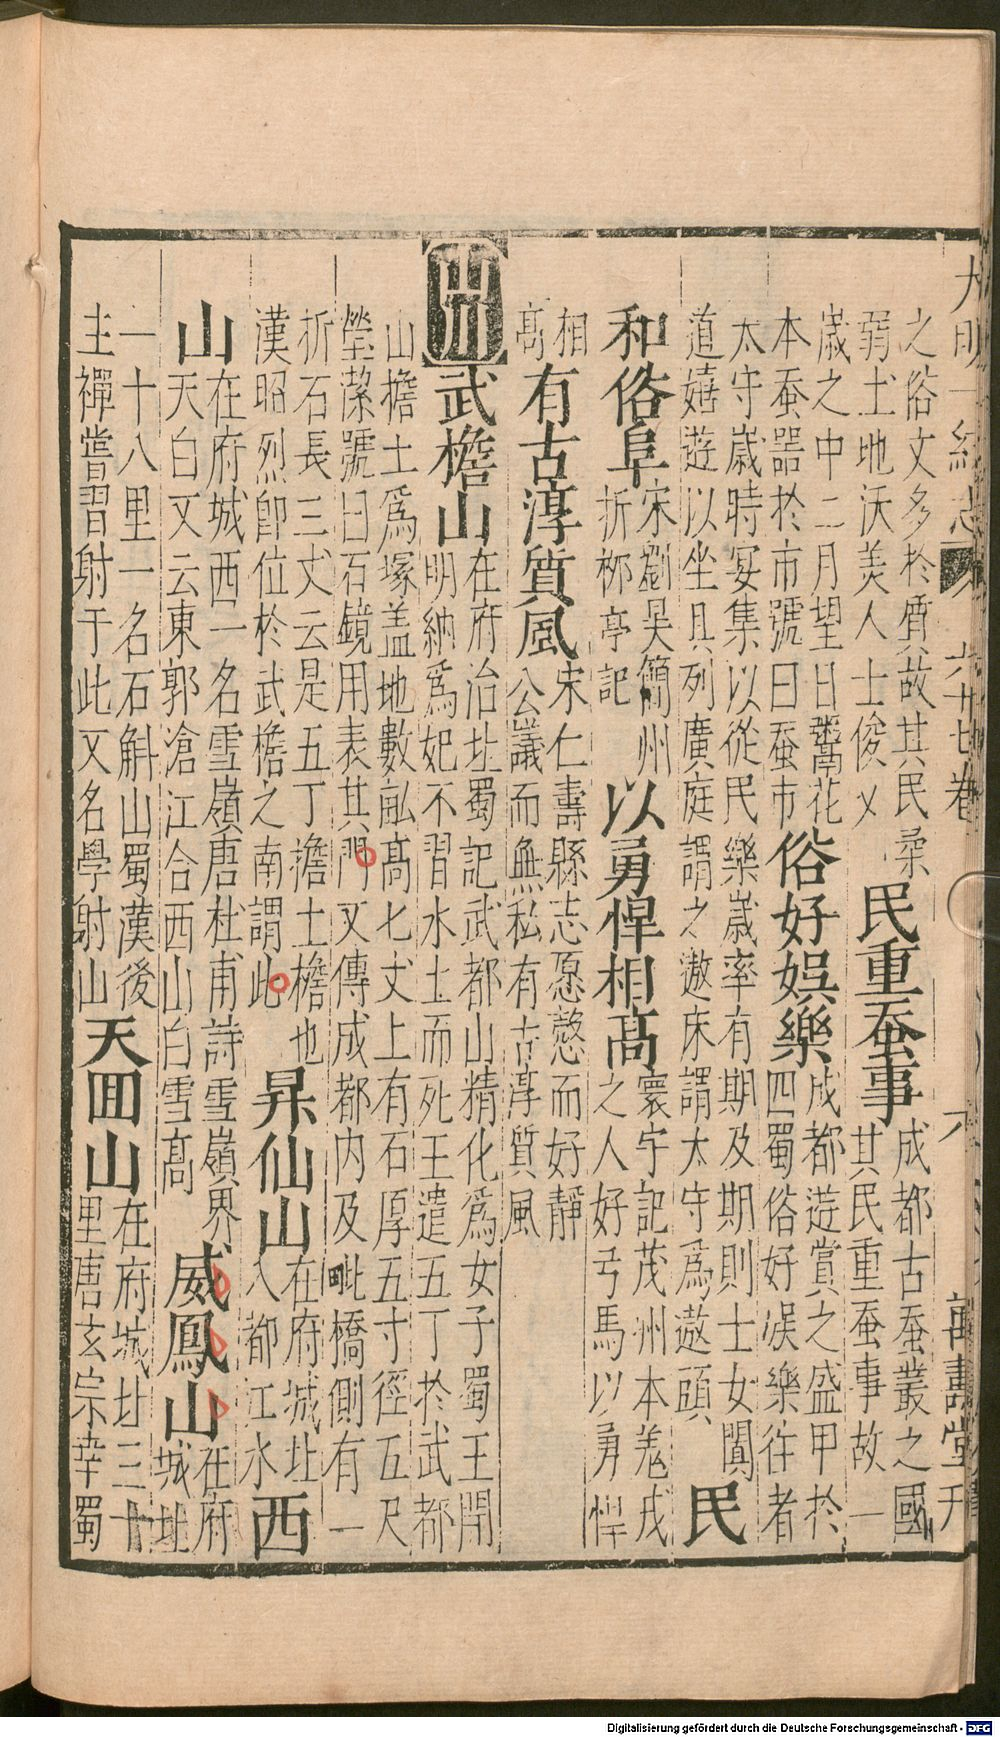 大明一統志 六十七卷 六 萬壽堂刊
之俗文多於質故其民柔
弱土地沃美人士俊乂
民重蚕事
成都古蚕叢之國
其民重蚕事故一
歲之中二月望日鬻花
本蚕噐於市號曰蚕市
俗好娯樂
成都遊賞之盛甲於
四蜀俗好娯樂徃者
太守歲時宴集以從民樂歲率有期及期則士女闐
道嬉遊以坐具列廣庭謂之遨床謂太守爲遨頭
民
和俗阜
宋劉吴簡州
折桞亭記
以勇悍相髙
寰宇記茂州本羗戎
之人好弓馬以勇悍
相
髙
有古淳質風
宋仁壽縣志愿慤而好靜
公議而無私有古淳質風
山川
武檐山
在府治北蜀記武都山精化爲女子蜀王開
明納爲妃不習水土而死王遣五丁於武都
山擔土爲塚盖地數畝髙七丈上有石厚五寸徑五尺
瑩潔號曰石鏡用表其門又傳成都内及毗橋側有一
折石長三丈云是五丁擔土檐也
漢昭烈卽位於武檐之南謂此
昇仙山
在府城北
入都江水
西
山
在府城西一名雪嶺唐杜甫詩雪嶺界
天白又云東郭滄江合西山白雪髙
威鳳山
在府
城北
一十八里一名石斛山蜀漢後
主禪嘗習射于此又名學射山
天回山
在府城北三十
里唐玄宗幸蜀
Digitalisierung gefördert durch die Deutsche Forschungsgemeinschaft - DFG